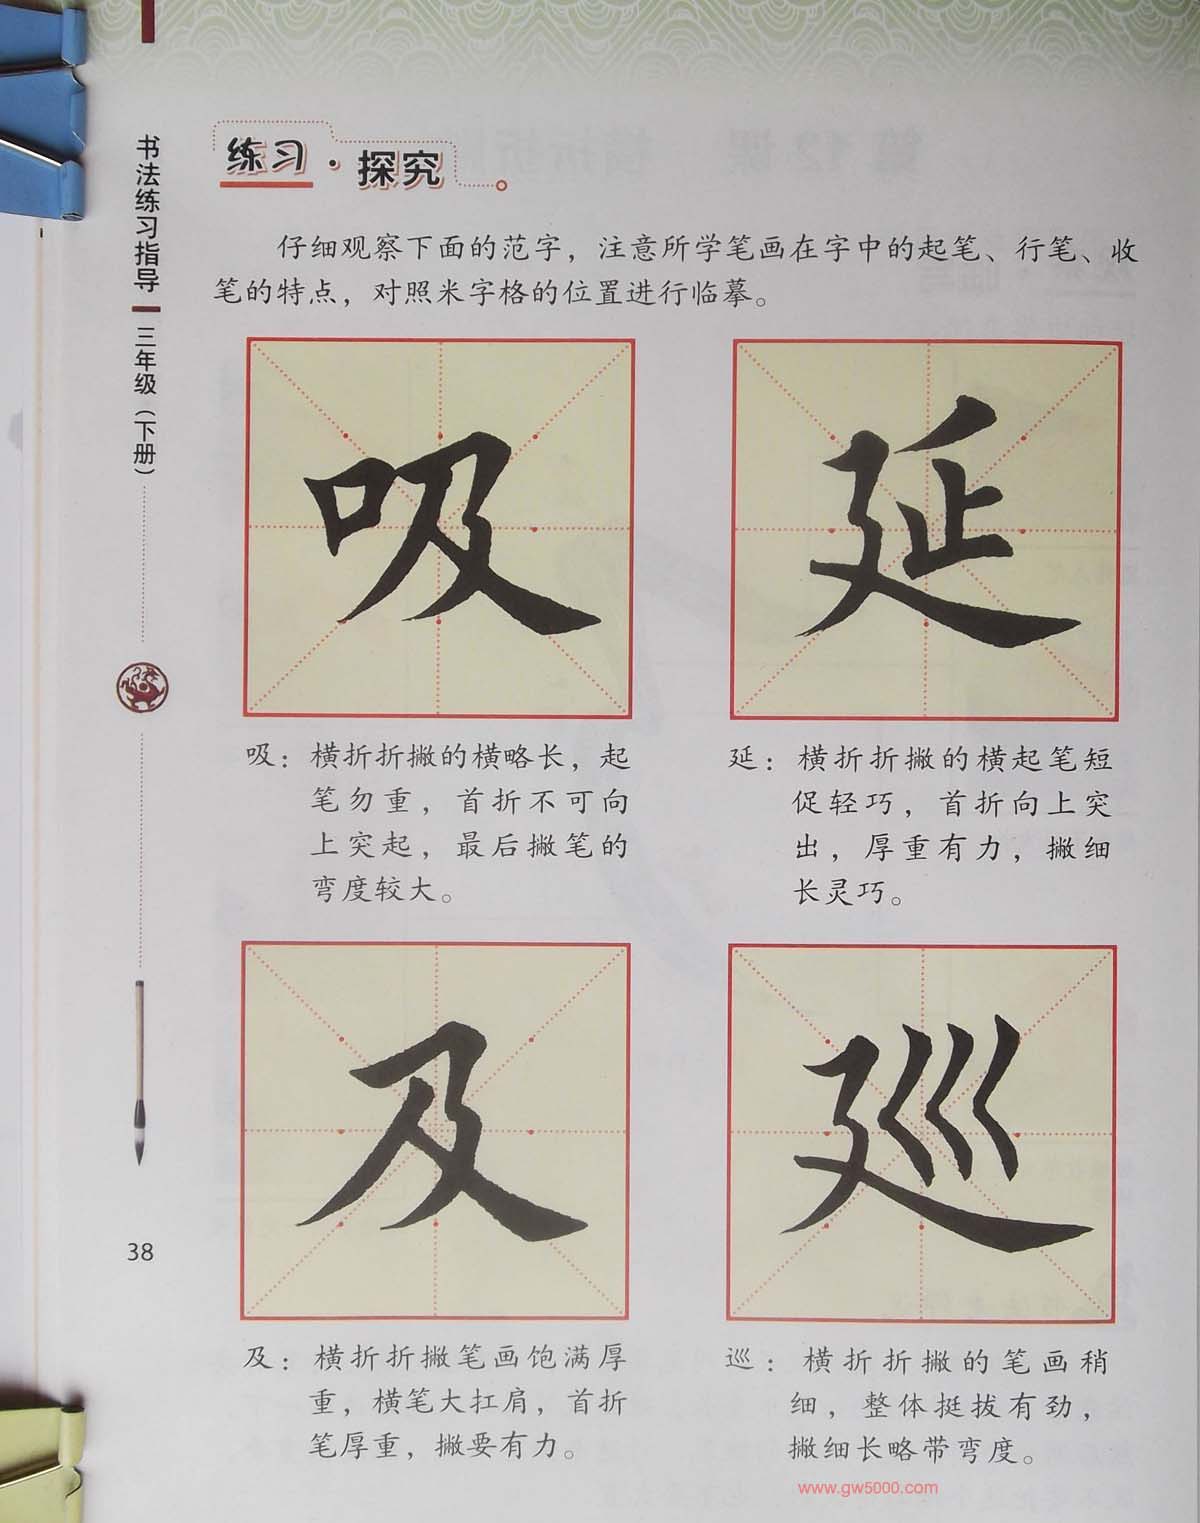 书法练习指导
三年级（下册）
练习·探究
仔细观察下面的范字，注意所学笔画在字中的起笔、行笔、收
笔的特点，对照米字格的位置进行临摹。
吸
延
吸：横折折撇的横略长，起
笔勿重，首折不可向
上突起，最后撇笔的
弯度较大。
延：横折折撇的横起笔短
促轻巧，首折向上突
出，厚重有力，撇细
长灵巧。
及
巡
及：横折折撇笔画饱满厚
重，横笔大扛肩，首折
笔厚重，撇要有力。
巡：横折折撇的笔画稍
细，整体挺拔有劲，
撇细长略带弯度。
38
www.gw5000.com